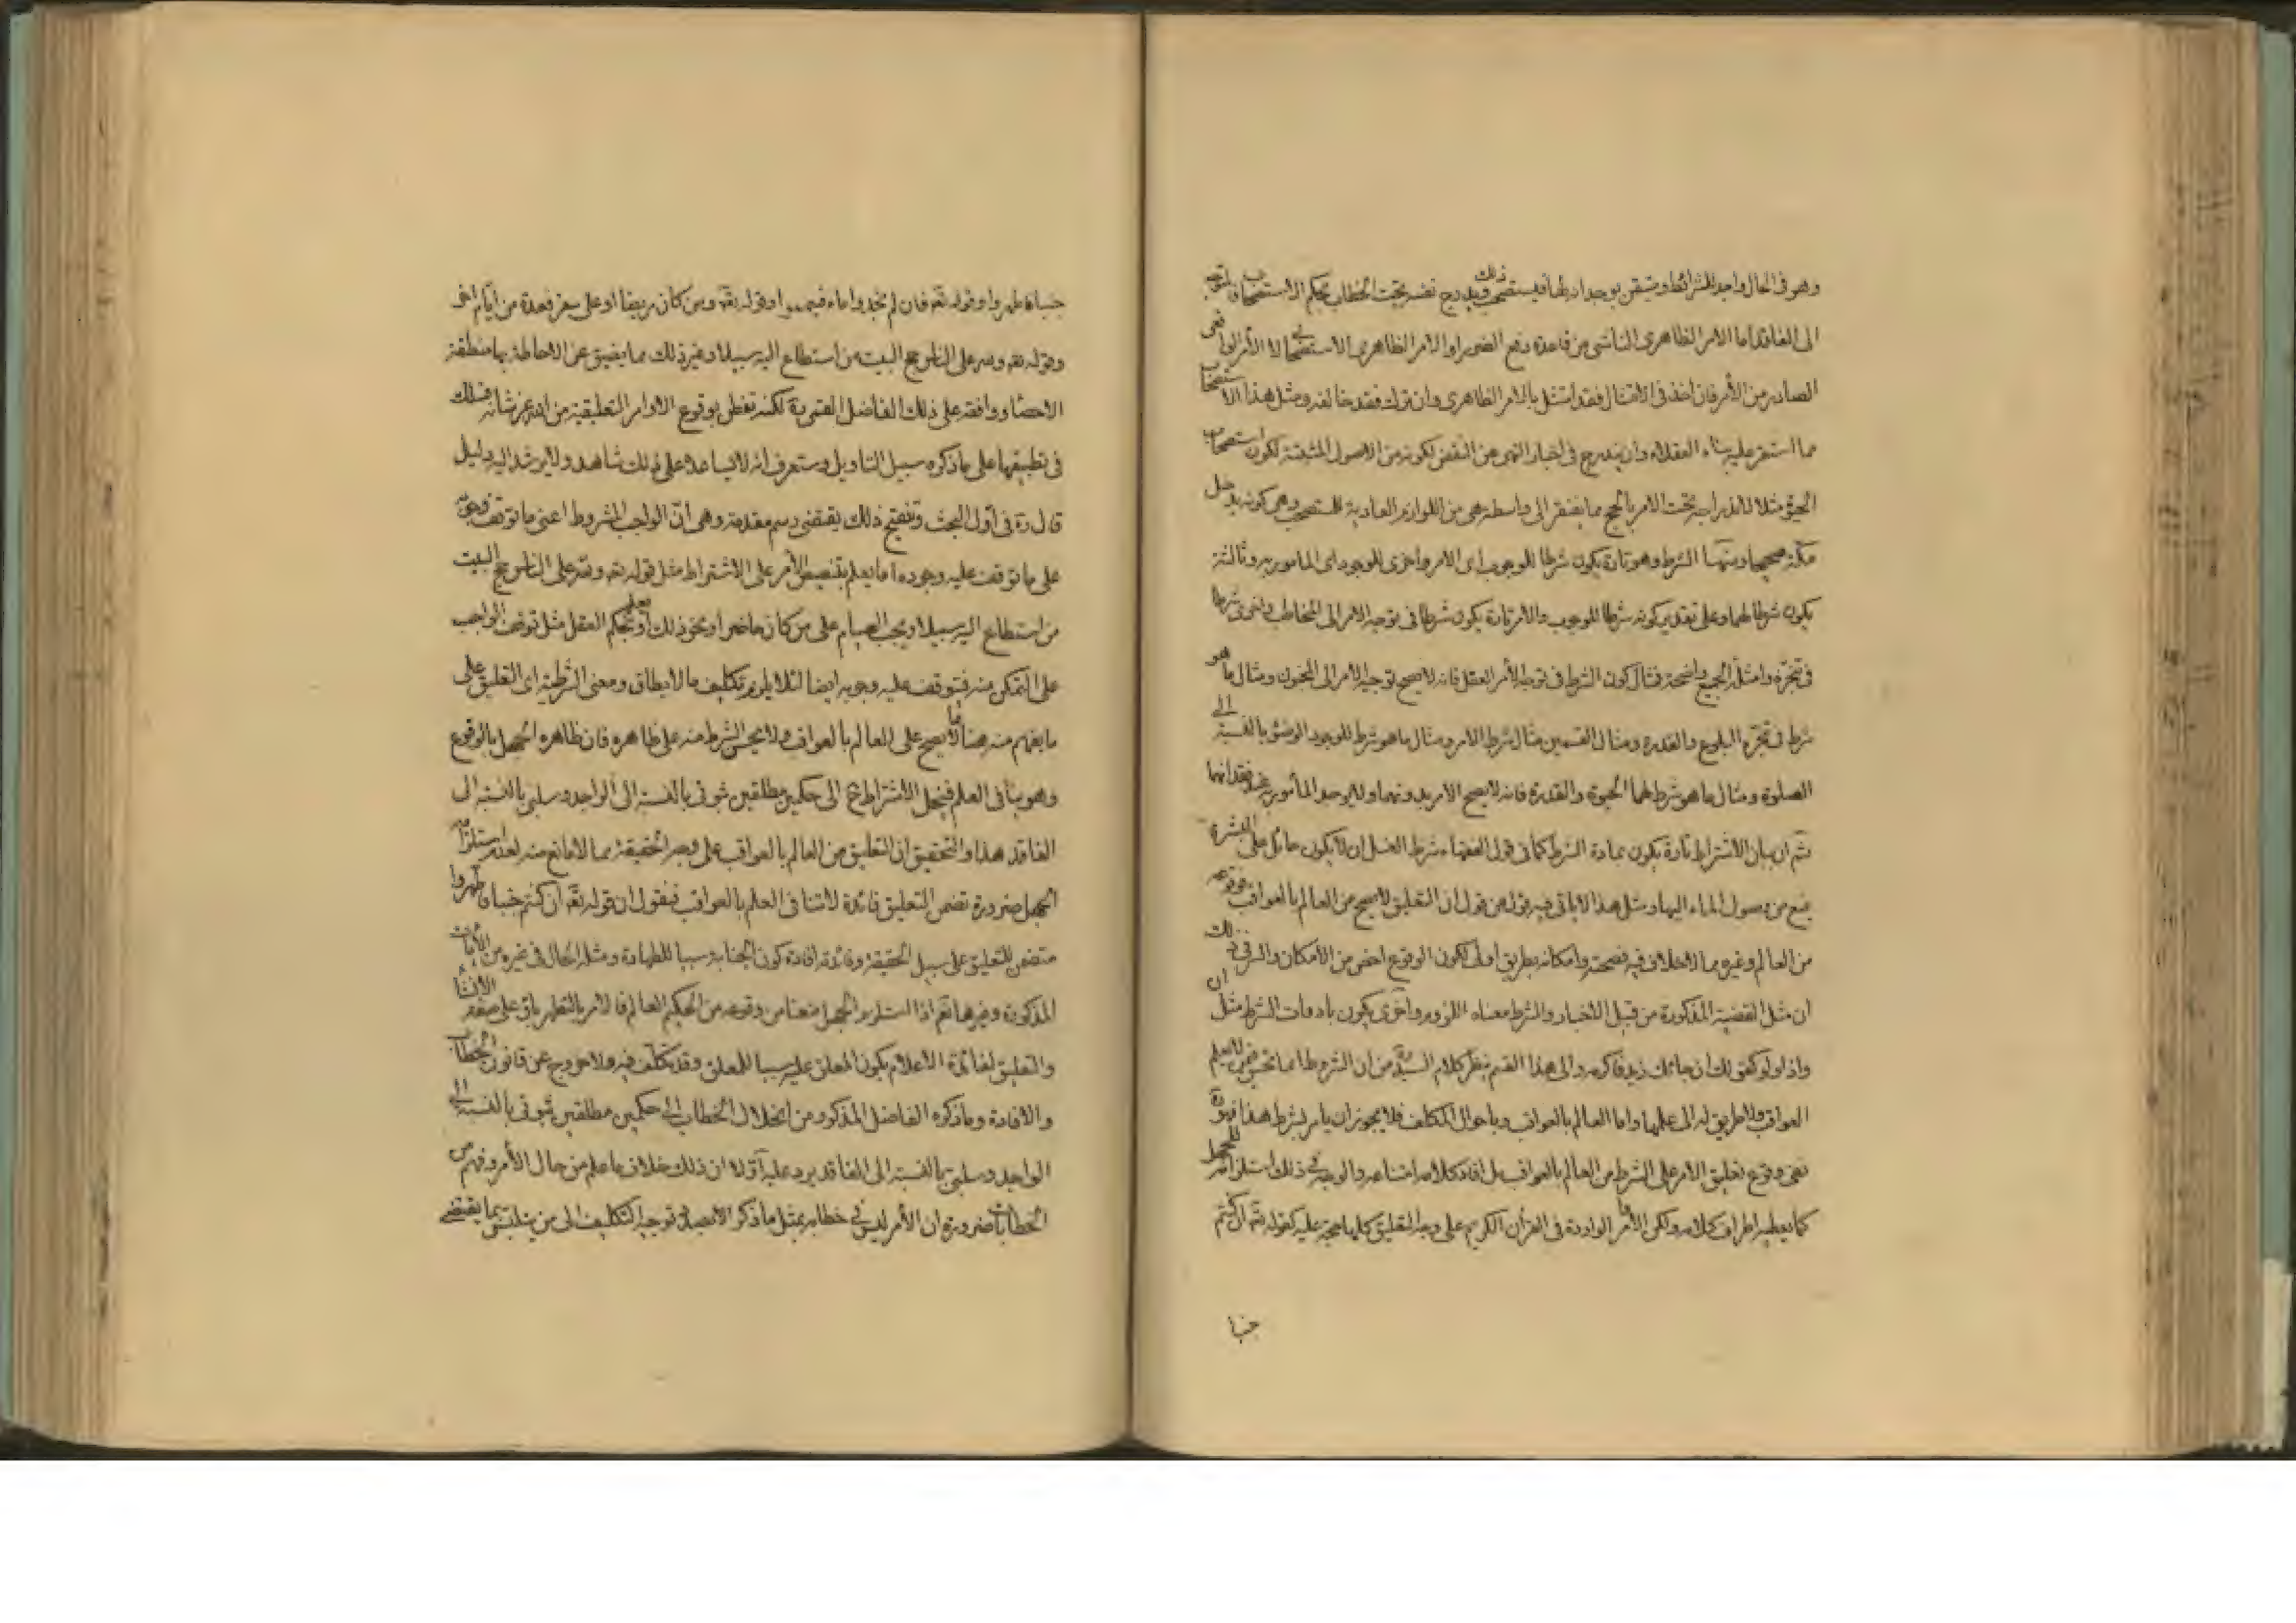 وهو فى الحال واجد للشرائط ومتيقن بوجدانها فيستصحب ذلك ويدرج نفسه تحت الخطاب بحكم الاستصحاب فالمتوجه
الى الفاقد اما الامر الظاهرى الناشى من قاعدة دفع الضرر او الامر الظاهرى الاستصحابى لا الأمر الواقعى
الصادر من الأمر فان اخذ فى الامتثال فقد امتثل بالامر الظاهرى وان ترك فقد خالفه ومثل هذا الاستصحاب
مما استقر عليه بناء العقلاء وان يندرج فى اخبار النهى عن النقض لكونه من الاصول المثبتة لكون استصحاب
الحيوة مثلا لاندراجه تحت الامر بالحج مما يفتقر الى واسطة هى من اللوازم العادية للمستصحب وهى كونه يدخل
مكة صحيحا ومنها الشرط وهو تارة يكون شرطا للوجوب اى الامر واخرى للوجود اى المأمور به وثالثة
يكون شرطا لهما وعلى تقدير كونه شرطا للوجوب والامر تارة يكون شرطا فى توجه الامر الى المخاطب واخرى شرطا
فى تنجزه وامثلة الجميع واضحة فمثال كون الشرط فى توجه الأمر العقل فانه لا يصح توجيه الامر الى المجنون ومثال ما هو
شرط فى تنجزه البلوغ والقدرة ومثال القسمين مثال شرط الامر ومثال ما هو شرط للوجود الوضوء بالنسبة الى
الصلوة ومثال ما هو شرط لهما الحيوة والقدرة فانه لا يصح الامر بدونهما ولا يوجد المأمور به عند فقدانهما
ثم ان بيان الاشتراط تارة يكون بمادة الشرط كما فى قول الفقهاء شرط الغسل ان لا يكون حائل على البشرة
يمنع من وصول الماء اليها ومثل هذا لا يأتى فيه قول من قول ان التعليق لا يصح من العالم بالعواقب فوقوعه
من العالم وغيره مما لا خلاف فيه فصحته وامكانه بطريق اولى لكون الوقوع اخص من الامكان والسر فى ذلك
ان مثل القضية المذكورة من قبيل الاخبار والشرط معناه اللزوم واخرى يكون بادوات الشرط مثل ان
واذا ولو كقولك ان جائك زيد فاكرمه والى هذا القسم ينظر كلام السيد ره من ان الشرط انما يحسن فيمن لا يعلم
العواقب ولا طريق له الى علمها واما العالم بالعواقب وباحوال المكلف فلا يجوز ان يامر بشرط هذا فهو ره
نفى وقوع تعليق الامر على الشرط من العالم بالعواقب بل افاد كلامه امتناعه والوجه فى ذلك استلزامه للجهل
كما يعطيه اطراف كلامه ولكن الاوامر الواردة فى القرآن الكريم على وجه التعليق كلها حجة عليه كقوله تع ان كنتم
جنبا
جنبا فاطهروا وقوله تع فان لم تجدوا ماء فتيمموا وقوله تع ومن كان مريضا او على سفر فعدة من ايام اخر
وقوله تع ولله على الناس حج البيت من استطاع اليه سبيلا وغير ذلك مما يضيق عن الاحاطة بها منطقة
الاحصاء ووافقه على ذلك الفاضل القمى ره لكنه تفطن بوقوع الاوامر التعليقية من الله عز شأنه فسلك
فى تطبيقها على ما ذكره سبيل التاويل وستعرف انه لا يساعد على ذلك شاهد ولا يرشد اليه دليل
قال ره فى اول البحث وتنقيح ذلك يقتضى رسم مقدمة وهى ان الواجب المشروط اعنى ما توقف وجوبه
على ما توقف عليه وجوده اما يعلم بتنصيص الأمر على الاشتراط مثل قوله تع ولله على الناس حج البيت
من استطاع اليه سبيلا ويجب الصيام على من كان حاضرا ونحو ذلك او يعلم بحكم العقل مثل توقف الواجب
على التمكن منه فتوقف عليه وجوبه ايضا لئلا يلزم تكليف ما لا يطاق ومعنى الشرطية اى التعليق على
ما يفهم منه هنا انما لا يصح على العالم بالعواقب ولا يحسن الشرط منه على ظاهره فان ظاهره الجهل بالوقوع
وهو ينافى العلم فينحل الاشتراط ح الى حكمين مطلقين ثبوتى بالنسبة الى الواجد وسلبى بالنسبة الى
الفاقد هذا والتحقيق ان التعليق من العالم بالعواقب على وجه الحقيقة مما لا مانع منه لعدم استلزامه
الجهل ضرورة تضمن التعليق فائدة لا تنافى العلم بالعواقب فنقول ان قوله تع ان كنتم جنبا فاطهروا
متضمن للتعليق على سبيل الحقيقة وفائدته افادة كون الجنابة سببا للطهارة ومثله الحال فى غيره من الآيات
المذكورة وغيرها نعم اذا استلزم الجهل منعنا من وقوعه من الحكيم العالم فالامر بالتطهر باق على صفة الانشاء
والتعليق لفائدة الاعلام بكون المعلق عليه سببا للمعلق وقد تكلف فيه ولا خروج عن قانون الخطاب
والافادة وما ذكره الفاضل المذكور من انحلال الخطاب الى حكمين مطلقين ثبوتى بالنسبة الى
الواجد وسلبى بالنسبة الى الفاقد يرد عليه اولا ان ذلك خلاف ما علم من حال الأمر وفهم من
الخطابات ضرورة ان الأمر ليس فى خطابه بمثل ما ذكر الا بصدد توجيه التكليف الى من يتلبس بما يقتضى